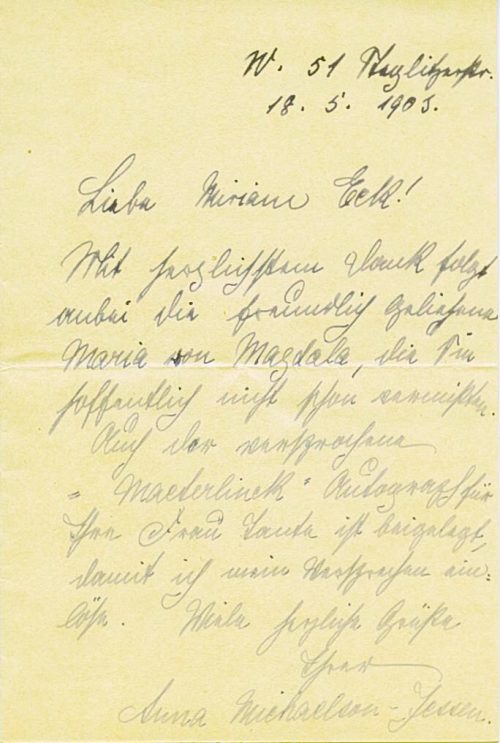 W. 51 Steglitzerstr.
18. 5. 1903.
Liebe Miriam Eck!
Mit herzlichstem Dank folgt
anbei die freundlich geliehene
Maria von Magdala, die Sie
hoffentlich nicht schon vermißten.
Auch der versprochene
„Maeterlinck“ Autograph für
Ihre Frau Tante ist beigelegt,
damit ich mein Versprechen ein-
löse. Viele herzliche Grüße
Ihrer
Anna Michaelson-Jessen.